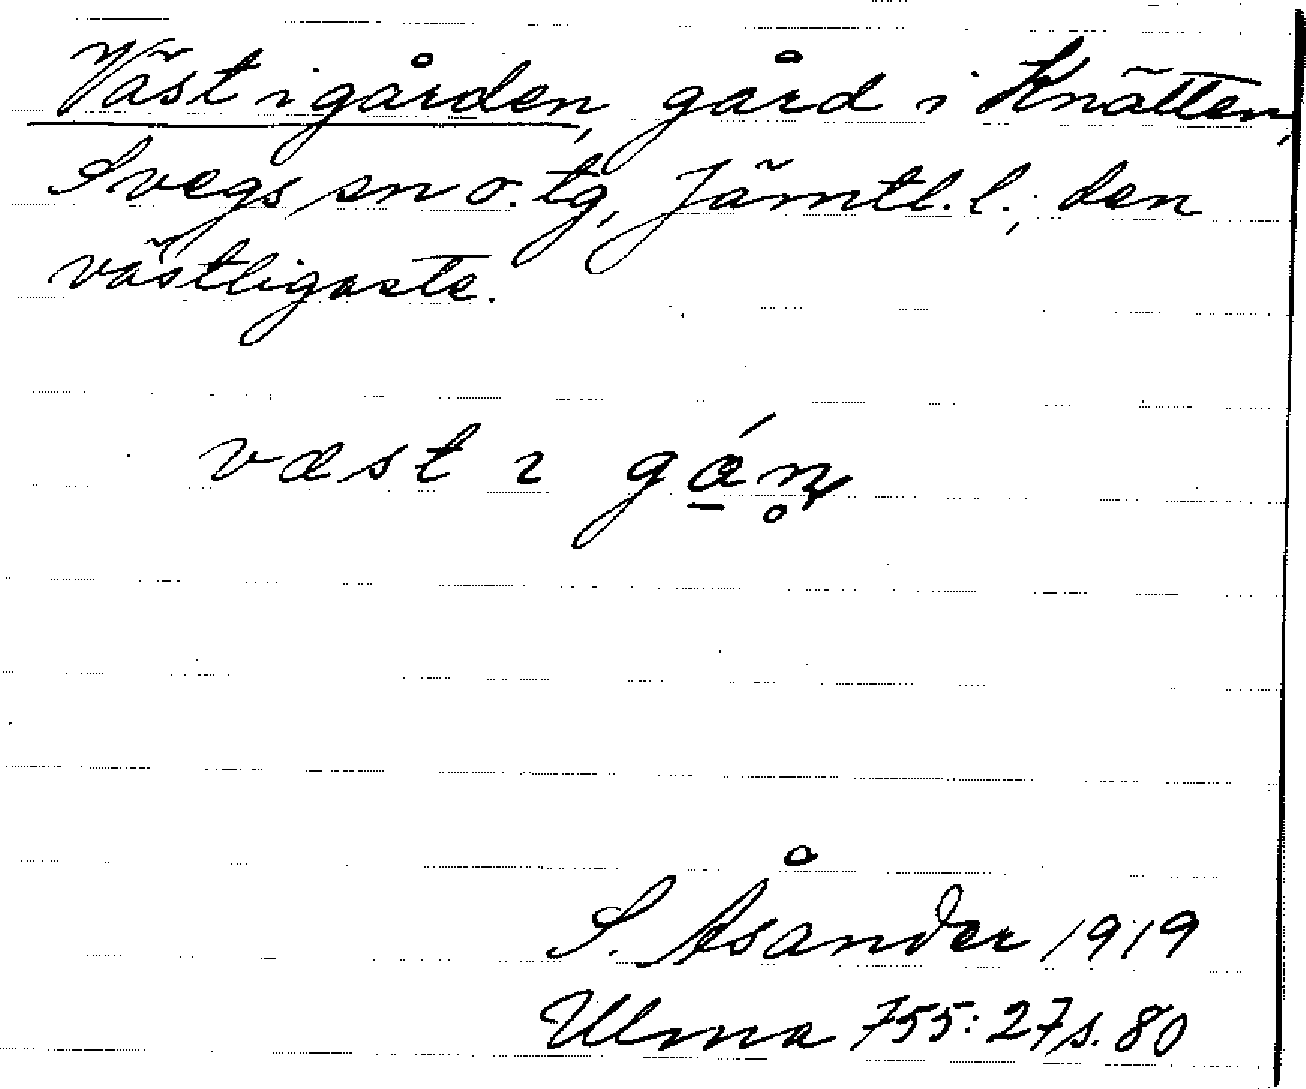 Väst i gården, gård i Knätten,
Svegs sn o. tg, Jämtl. l.; den
västligaste.
væst ı gáṇ̥
S. Åsander 1919
Ulma 755:27 s. 80